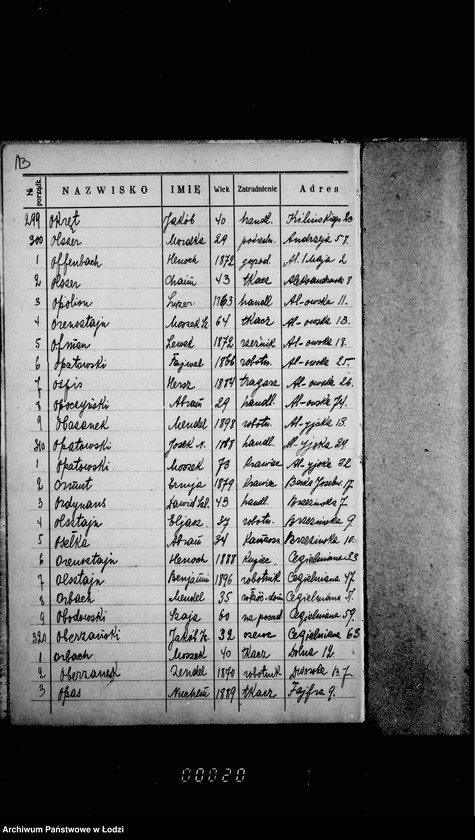 13
№ porządk. NAZWISKO IMIĘ Wiek Zatrudnienie Adres
299 Okręt Jakób 40 handl.
300 Olszer Mordka 29 pośredn. Andrzeja 57.
1 Offenbach Henoch 1872 gospod. Al. 1 Maja 2
2 Olszer Chaim 43 tkacz Aleksandrowska 8
3 Opolion Luzer 1863 handl. Al-owska 11.
4 Orensztajn Moszek Sz. 64 tkacz Al-owska 13.
5 Ofman Lewek 1872 rzeźnik Al-owska 18.
6 Opatowski Fajwel 1866 robotn. Al-owska 25.
7 Ospis Hersz 1884 tragarz Al-owska 26.
8 Opoczyński Abram 29 handl. Al-owska 74.
9 Obasanek Mendel 1898 robotn. Al-yjska 18.
310 Opatowski Josek handl. Al-yjska 29
1 Opatowski Moszek 73 krawiec Al-yjska 32
2 Szmja 1879 krawiec 17.
3 Ordynans Dawid 43 handl. Brzezińska 7.
4 Olsztajn Eljasz. 37 robotn. Brzezińska 9.
5 Abram 34 kamasz. Brzezińska 10.
6 Orensztajn Henoch 1888 kupiec Cegielniana 23
7 Olsztajn Benjamin 1896 robotnik Cegielniana 47.
8 Orbach Mendel 35 Cegielniana
9 Obodowski Szaja 60 na posad. Cegielniana 59.
320 Oberzański Jakób 32 szewc Cegielniana 63
1 Orbach Moszek 40 tkacz Dolna 12.
2 Oberzanek Zendel 1870 robotnik Dworska 13.7
3 Opas Nuchem 1889 tkacz Fajfra 9.
00020
Archiwum Państwowe w Łodzi